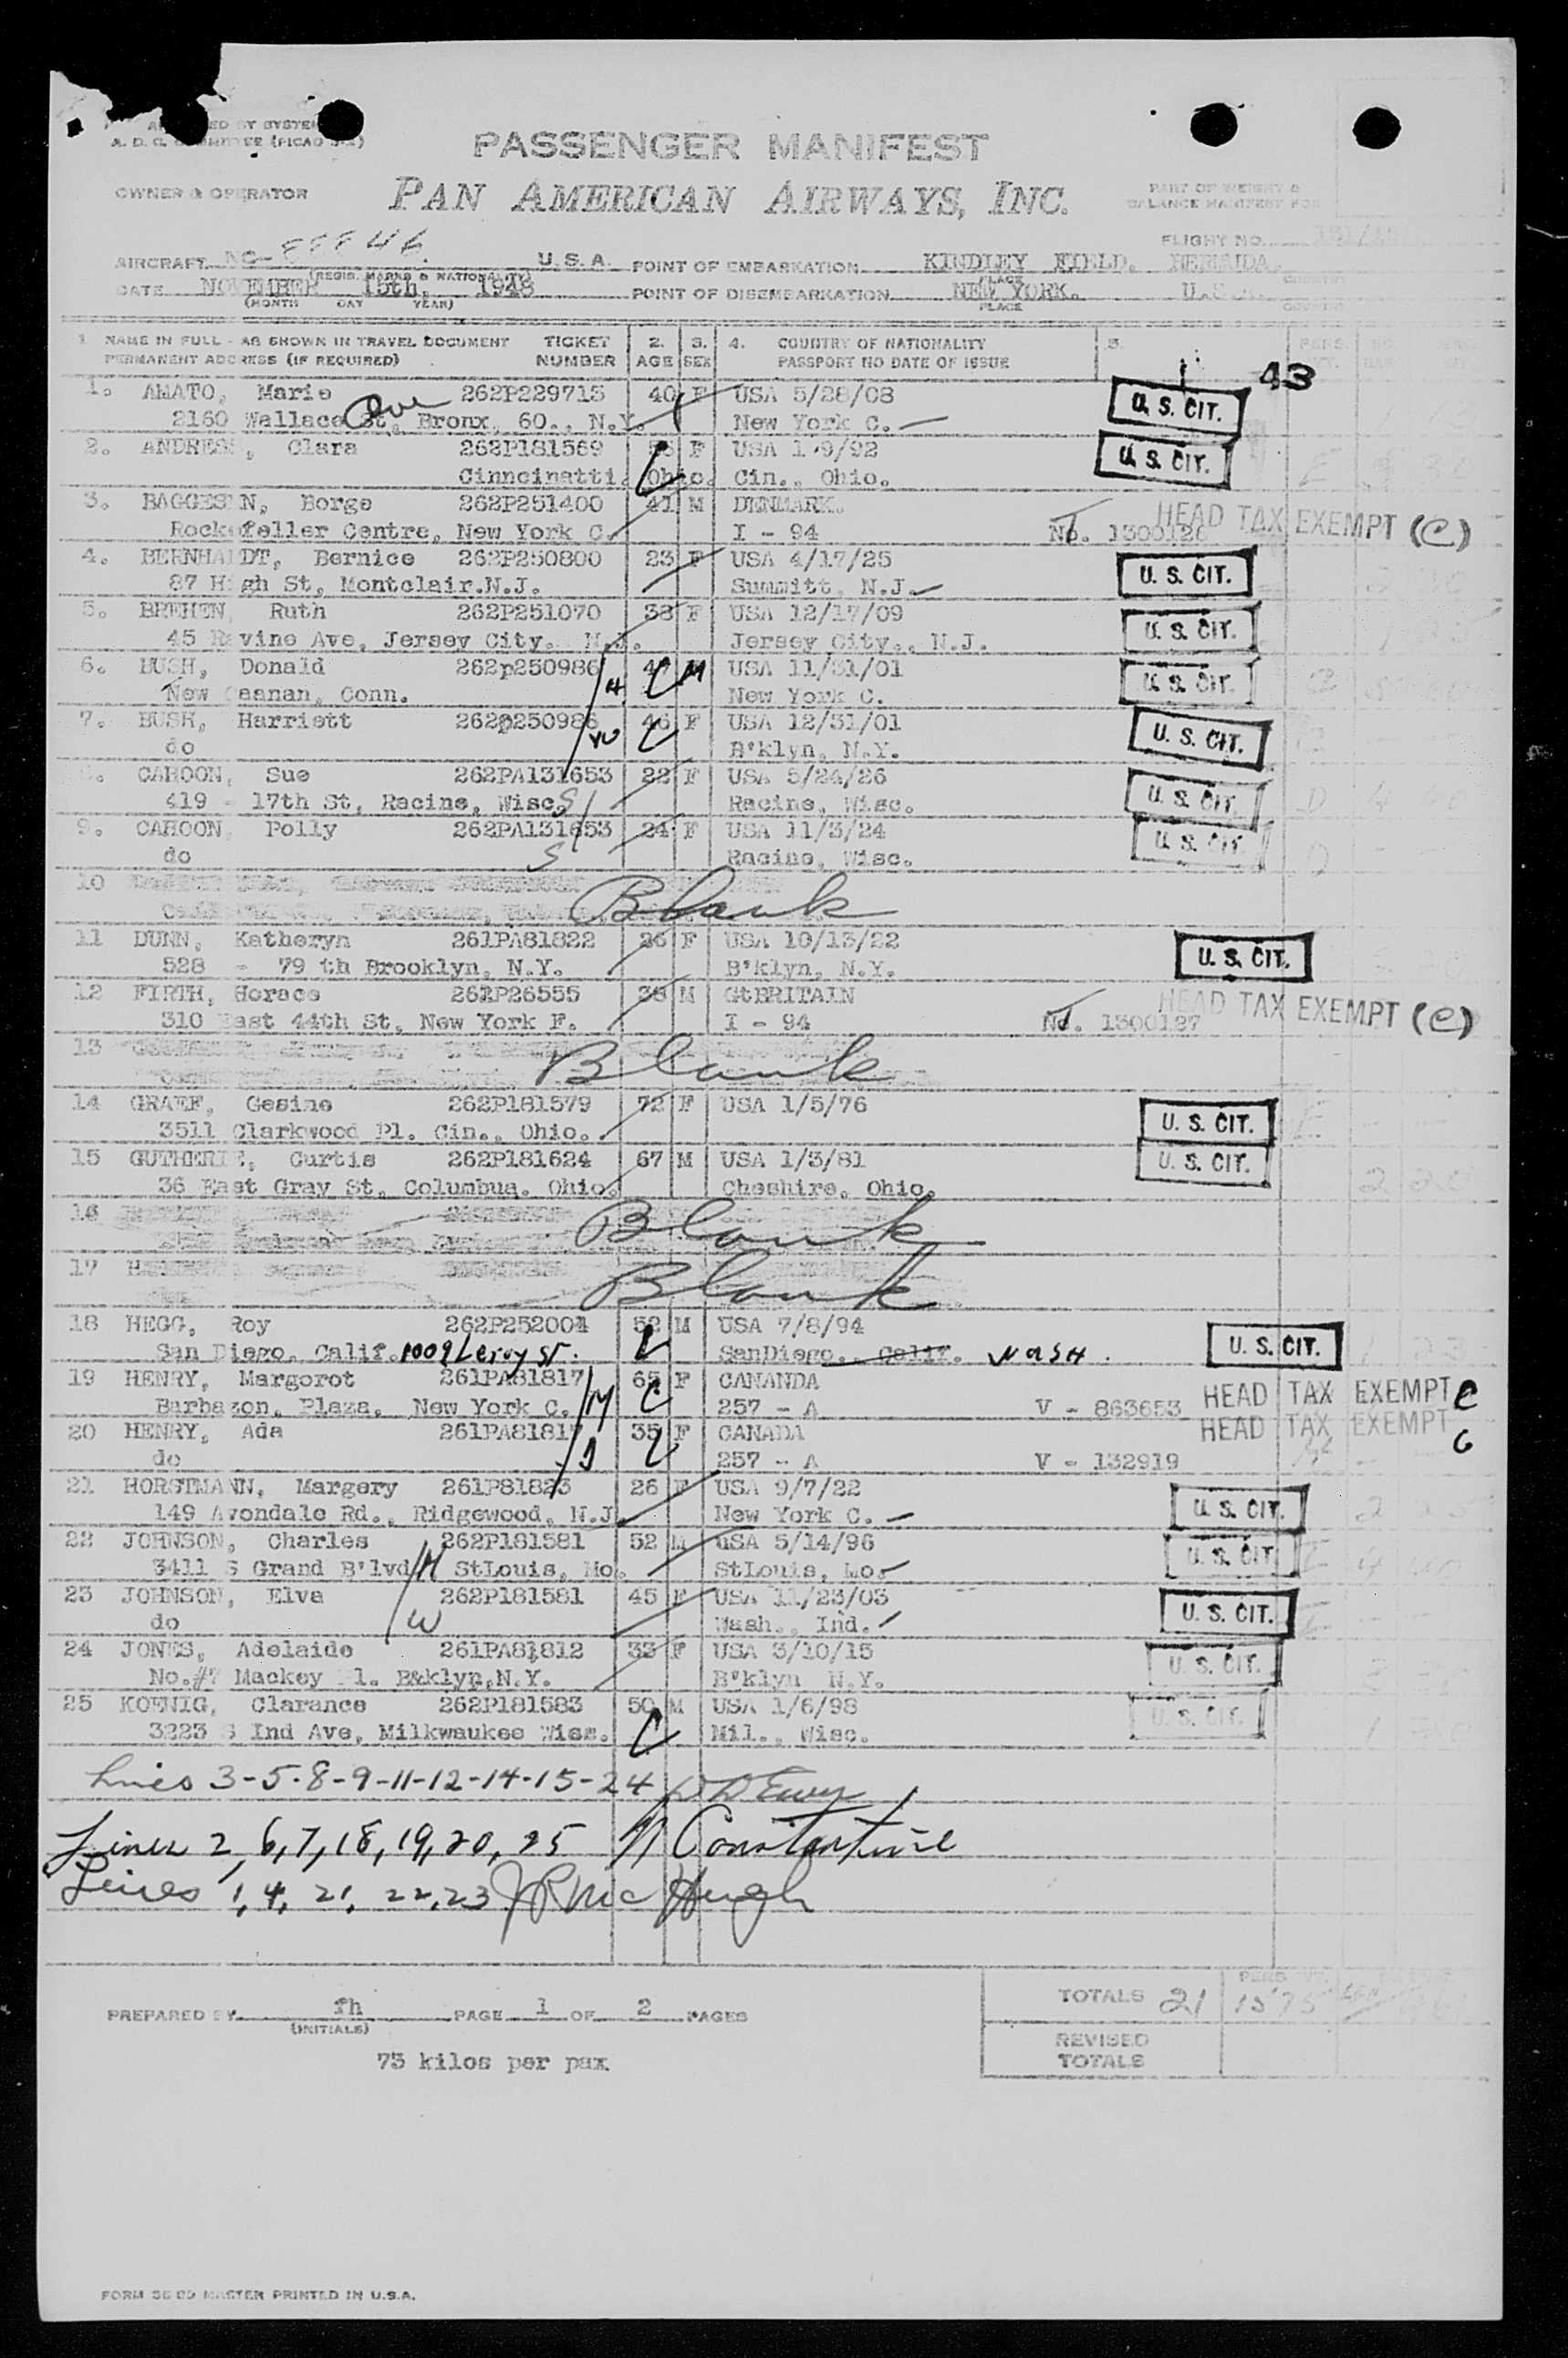 PASSENGER MANIFEST
OWNER & OPERATOR PAN AMERICAN AIRWAYS, INC.
PART OF WEIGHT &
BALANCE MANIFEST FOR
FLIGHT NO.
AIRCRAFT NC- U.S.A. POINT OF EMBARKATION KINDLEY FIELD. BERMUDA.
(REGIS. MARKS & NATIONALITY) PLACE COUNTRY
DATE NOVEMBER 15th, 1948 POINT OF DISEMBARKATION NEW YORK. U.S.A.
(MONTH DAY YEAR) PLACE COUNTRY
1 NAME IN FULL - AS SHOWN IN TRAVEL DOCUMENT TICKET 2. 3. 4. COUNTRY OF NATIONALITY 5.
PERMANENT ADDRESS (IF REQUIRED) NUMBER AGE SEX PASSPORT NO DATE OF ISSUE
43
1. AMATO, Marie 262P229713 40 F USA 5/28/08 U. S. CIT.
2160 Wallace St, Ave Bronx, 60., N.Y. New York C.
2. ANDRESS, Clara 262P181569 F USA 1/9/92 U. S. CIT.
Cinncinatti. Ohio. Cin., Ohio.
3. BAGGESEN, Borge 262P251400 41 M DENMARK. HEAD TAX EXEMPT (C)
Rockefeller Centre, New York C. I - 94 No. 1300126
4. BERNHARDT, Bernice 262P250800 23 F USA 4/17/25 U. S. CIT.
87 High St, Montclair.N.J. Summitt, N.J.
5. BREHEN, Ruth 262P251070 38 F USA 12/17/09 U. S. CIT.
45 Ravine Ave, Jersey City. N.J. Jersey City., N.J.
6. BUSH, Donald 262p250986 H M USA 11/31/01 U. S. CIT.
New Ceanan, Conn. New York C.
7. BUSH, Harriett 262p250986 W 46 F USA 12/31/01 U. S. CIT.
do B'klyn, N.Y.
8. CAHOON, Sue 262PA131653 22 F USA 5/24/26 U. S. CIT.
419 - 17th St, Racine, Wisc. S Racine, Wisc.
9. CAHOON, Polly 262PA131653 24 F USA 11/3/24 U. S. CIT.
do S Racine, Wisc.
10 Blank
11 DUNN, Katheryn 261PA81822 26 F USA 10/13/22 U. S. CIT.
528 - 79 th Brooklyn, N.Y. B'klyn, N.Y.
12 FIRTH, Horace 262P26555 36 M GtBRITAIN HEAD TAX EXEMPT (C)
310 East 44th St, New York F. I - 94 No. 1300127
13 Blank
14 GRAEF, Gesine 262P181579 72 F USA 1/5/76 U. S. CIT.
3511 Clarkwood Pl. Cin., Ohio.
15 GUTHERIE, Curtis 262P181624 67 M USA 1/3/81 U. S. CIT.
36 East Gray St, Columbua. Ohio. Cheshire, Ohio.
16 Blank
17 Blank
18 HEGG, Roy 262P252004 52 M USA 7/8/94 U. S. CIT.
San Diego, Calif. 1009 Leroy ST. SanDiego., Calif. WASH.
19 HENRY, Margorot 261PA81817 65 F CANANDA HEAD TAX EXEMPT C
Barbazon, Plaza, New York C. M 257 - A V - 863653
20 HENRY, Ada 261PA81817 35 F CANADA HEAD TAX EXEMPT C
do D 257 - A V - 132919
21 HORSTMANN, Margery 261P81823 26 F USA 9/7/22 U. S. CIT.
149 Avondale Rd., Ridgewood, N.J. New York C.
22 JOHNSON, Charles 262P181581 52 M USA 5/14/96 U. S. CIT.
3411 S Grand B'lvd H StLouis, Mo. StLouis, Mo.
23 JOHNSON, Elva 262P181581 45 F USA 11/23/03 U. S. CIT.
do W Wash., Ind.
24 JONES, Adelaide 261PA81812 33 F USA 3/10/15 U. S. CIT.
No.#7 Mackey Pl. B&klyn,N.Y. B'klyn N.Y.
25 KOENIG, Clarance 262P181583 50 M USA 1/6/98 U. S. CIT.
3223 S Ind Ave, Milkwaukee Wisc. Mil., Wisc.
Lines 3-5-8-9-11-12-14-15-24
Lines 2, 6, 7, 18, 19, 20, 25 Constantine
Lines 1, 4, 21, 22, 23 JR McHugh
TOTALS 21 1575
PREPARED BY fh PAGE 1 OF 2 PAGES
(INITIALS)
REVISED
TOTALS
75 kilos per pax
MASTER PRINTED IN U.S.A.